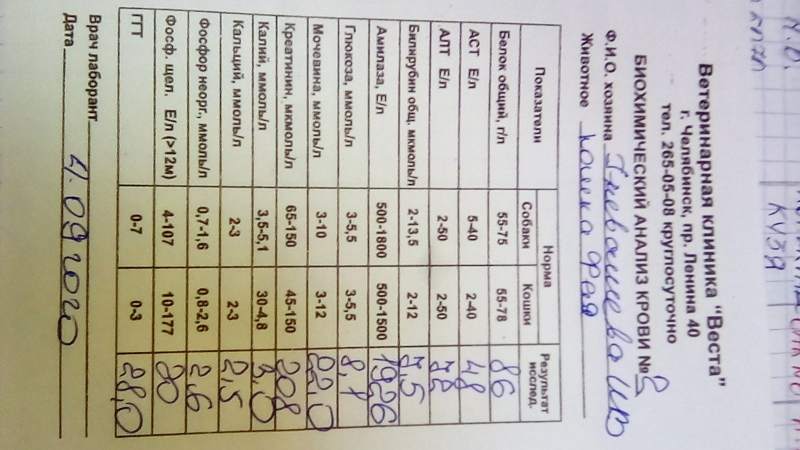 Ветеринарная клиника "Веста"
г. Челябинск, пр. Ленина 40
тел. 265-05-08 круглосуточно
БИОХИМИЧЕСКИЙ АНАЛИЗ КРОВИ № 2
Ф.И.О. хозяина
Животное кошка Фея
Показатели Норма Результат исслед.
Собаки Кошки
Белок общий, г/л 55-75 55-78 86
АСТ Е/л 5-40 2-40 48
АЛТ Е/л 2-50 2-50 72
Билирубин общ. мкмоль/л 2-13,5 2-12 7,5
Амилаза, Е/л 500-1800 500-1500 1926
Глюкоза, ммоль/л 3-5,5 3-5,5 8,1
Мочевина, ммоль/л 3-10 3-12 22,0
Креатинин, мкмоль/л 65-150 45-150 208
Калий, ммоль/л 3,5-5,1 30-4,8 3,0
Кальций, ммоль/л 2-3 2-3 2,5
Фосфор неорг., ммоль/л 0,7-1,6 0,8-2,6 2,6
Фосф. щел. Е/л (>12м) 4-107 10-177 80
ГГТ 0-7 0-3 28,0
Врач лаборант
Дата 4.09 2020
КУЗЯ